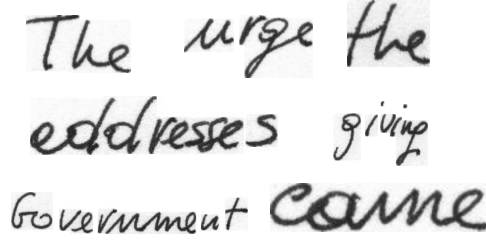 The urge the
addresses giving
Government came